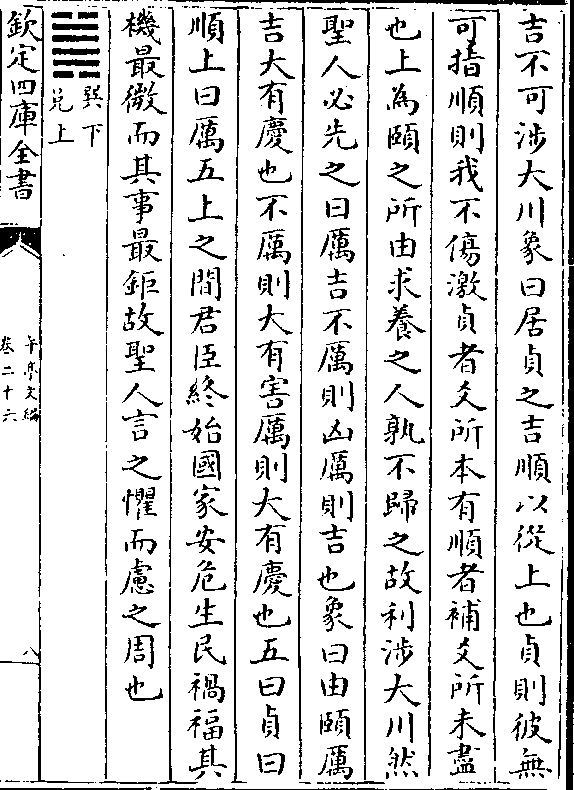 吉不可涉大川象曰居貞之吉順以從上也貞則彼無
可揩順則我不傷激貞者爻所本有順者補爻所未盡
也上為頤之所由求養之人孰不歸之故利涉大川然
聖人必先之曰厲吉不厲則凶厲則吉也象曰由頤厲
吉大有慶也不厲則大有害厲則大有慶也五曰貞曰
順上曰厲五上之間君臣終始國家安危生民禍福其
機最微而其事最鉅故聖人言之懼而慮之周也
巽下
兑上
欽定四庫全書
午亭文編
卷二十六
八